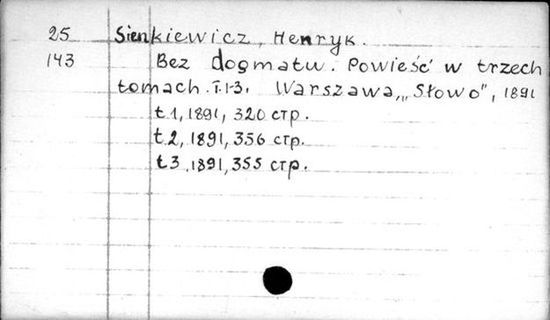 25 Sienkiewicz, Henryk.
143 Bez dogmatu. Powieść w trzech
tomach. T.1-3. Warszawa, „Słowo", 1891
t.1, 1891, 320 стр.
t.2, 1891, 356 стр.
t.3, 1891, 355 стр.